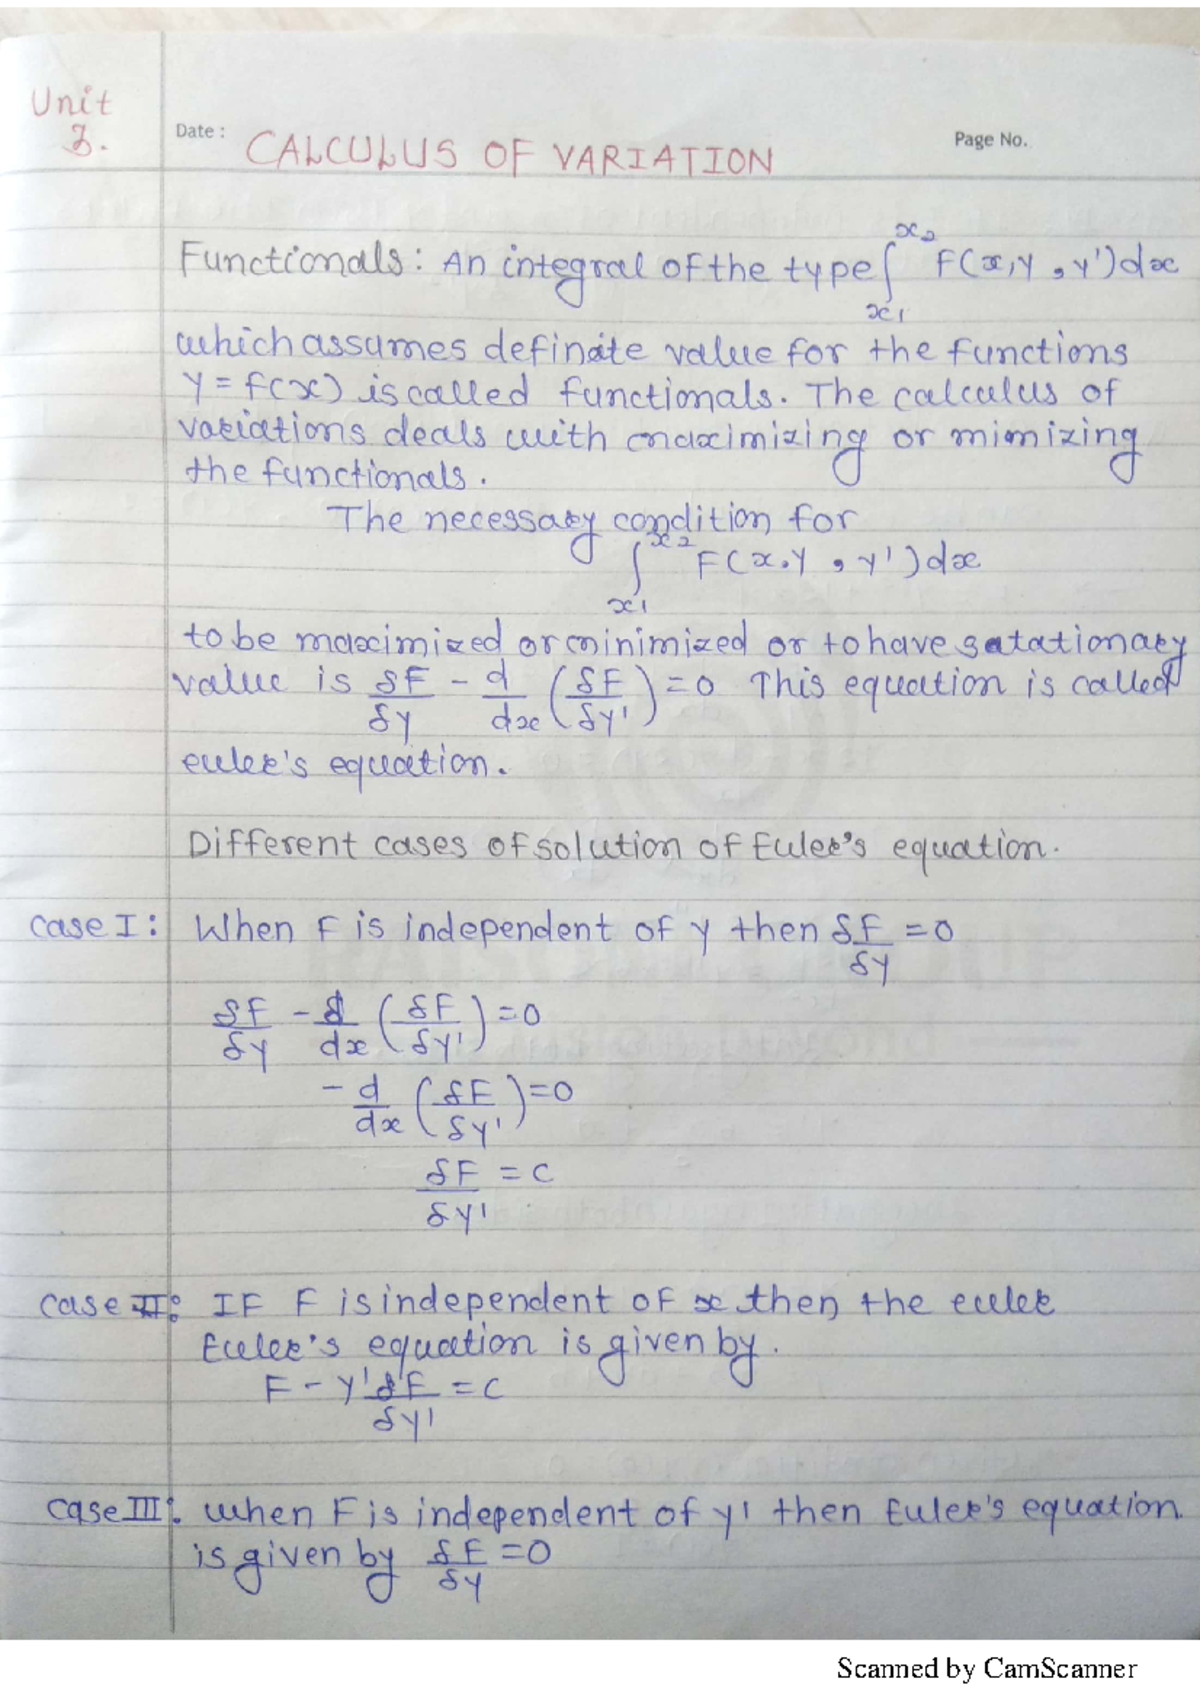 Unit
3.
Date :
CALCULUS OF VARIATION
Page No.
Functionals: An integral of the type ∫ₓ₁ˣ² F(x,y,y')dx
which assumes definate value for the functions
y = f(x) is called functionals. The calculus of
variations deals with maximizing or mimizing
the functionals.
The necessary condition for
∫ₓ₁ˣ² F(x.y,y')dx
to be maximized or minimized or to have satationary
value is δF/δy - d/dx (δF/δy') = 0 This equation is called
euler's equation.
Different cases of solution of Euler's equation.
case I: When F is independent of y then δF/δy = 0
δF/δy - d/dx (δF/δy') = 0
- d/dx (δF/δy') = 0
δF/δy' = c
case II: IF F is independent of x then the euler
Euler's equation is given by.
F - y' δF/δy' = c
case III: when F is independent of y' then Euler's equation
is given by δF/δy = 0
Scanned by CamScanner